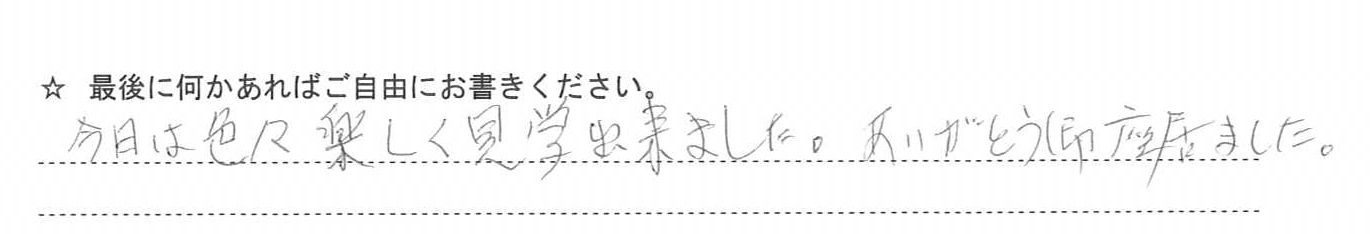 ☆ 最後に何かあればご自由にお書きください。
今日は色々楽しく見学出来ました。ありがとう御座居ました。